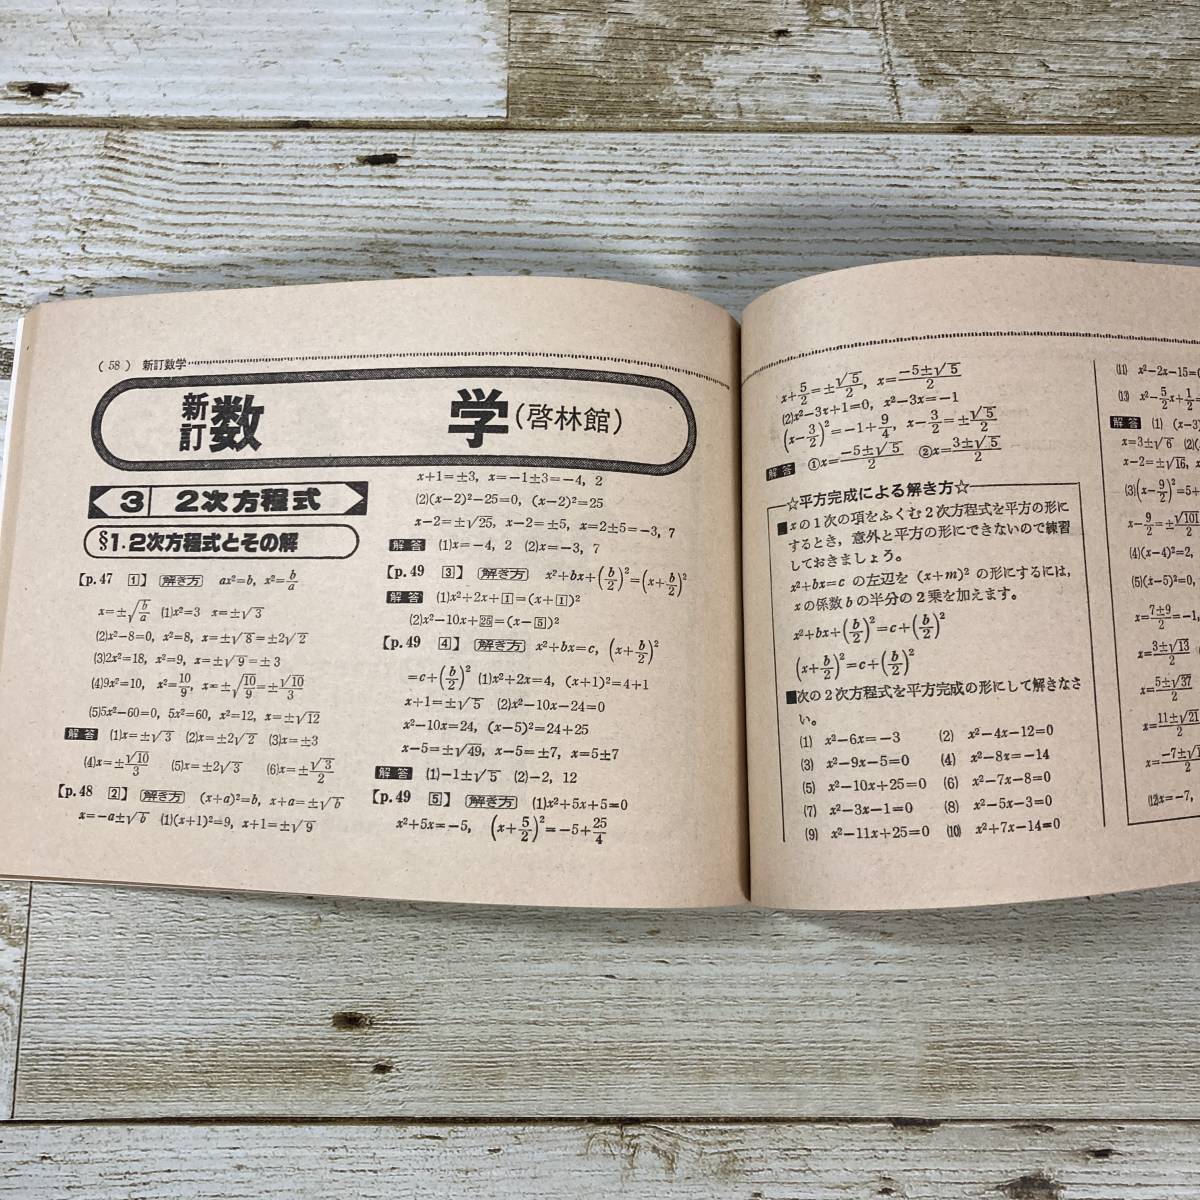 (58) 新訂数学
新訂 数学 (啓林館)
3 2次方程式
§1. 2次方程式とその解
【p.47 1】 解き方 ax²=b, x²=b/a
x=±√(b/a) (1)x²=3 x=±√3
(2)x²−8=0, x²=8, x=±√8=±2√2
(3)2x²=18, x²=9, x=±√9=±3
(4)9x²=10, x²=10/9, x=±√(10/9)=±√10/3
(5)5x²−60=0, 5x²=60, x²=12, x=±√12
解答 (1)x=±√3 (2)x=±2√2 (3)x=±3
(4)x=±√10/3 (5)x=±2√3 (6)x=±√3/2
【p.48 2】 解き方 (x+a)²=b, x+a=±√b
x=−a±√b (1)(x+1)²=9, x+1=±√9
x+1=±3, x=−1±3=−4, 2
(2)(x−2)²−25=0, (x−2)²=25
x−2=±√25, x−2=±5, x=2±5=−3, 7
解答 (1)x=−4, 2 (2)x=−3, 7
【p.49 3】 解き方 x²+bx+(b/2)²=(x+b/2)²
解答 (1)x²+2x+1=(x+1)²
(2)x²−10x+25=(x−5)²
【p.49 4】 解き方 x²+bx=c, (x+b/2)²
=c+(b/2)² (1)x²+2x=4, (x+1)²=4+1
x+1=±√5 (2)x²−10x−24=0
x²−10x=24, (x−5)²=24+25
x−5=±√49, x−5=±7, x=5±7
解答 (1)−1±√5 (2)−2, 12
【p.49 5】 解き方 (1)x²+5x+5=0
x²+5x=−5, (x+5/2)²=−5+25/4
x+5/2=±√5/2, x=(−5±√5)/2
(2)x²−3x+1=0, x²−3x=−1
(x−3/2)²=−1+9/4, x−3/2=±√5/2
解答 ①x=(−5±√5)/2 ②x=(3±√5)/2
☆平方完成による解き方☆
■xの1次の項をふくむ2次方程式を平方の形に
するとき，意外と平方の形にできないので練習
しておきましょう。
x²+bx=c の左辺を (x+m)² の形にするには，
xの係数bの半分の2乗を加えます。
x²+bx+(b/2)²=c+(b/2)²
(x+b/2)²=c+(b/2)²
■次の2次方程式を平方完成の形にして解きなさ
い。
(1) x²−6x=−3 (2) x²−4x−12=0
(3) x²−9x−5=0 (4) x²−8x=−14
(5) x²−10x+25=0 (6) x²−7x−8=0
(7) x²−3x−1=0 (8) x²−5x−3=0
(9) x²−11x+25=0 (10) x²+7x−14=0
(11) x²−2x−15=0
(13) x²−5/2x+1/2=
解答 (1) (x−3)
x=3±√6 (2)
x−2=±√16,
(3)(x−9/2)²=5+
x−9/2=±√101/2
(4)(x−4)²=2,
(5)(x−5)²=0,
x=(7±9)/2=−1,
x=(3±√13)/2
x=(5±√37)/2
x=(11±√21)/2
x=
(12)x=−7,